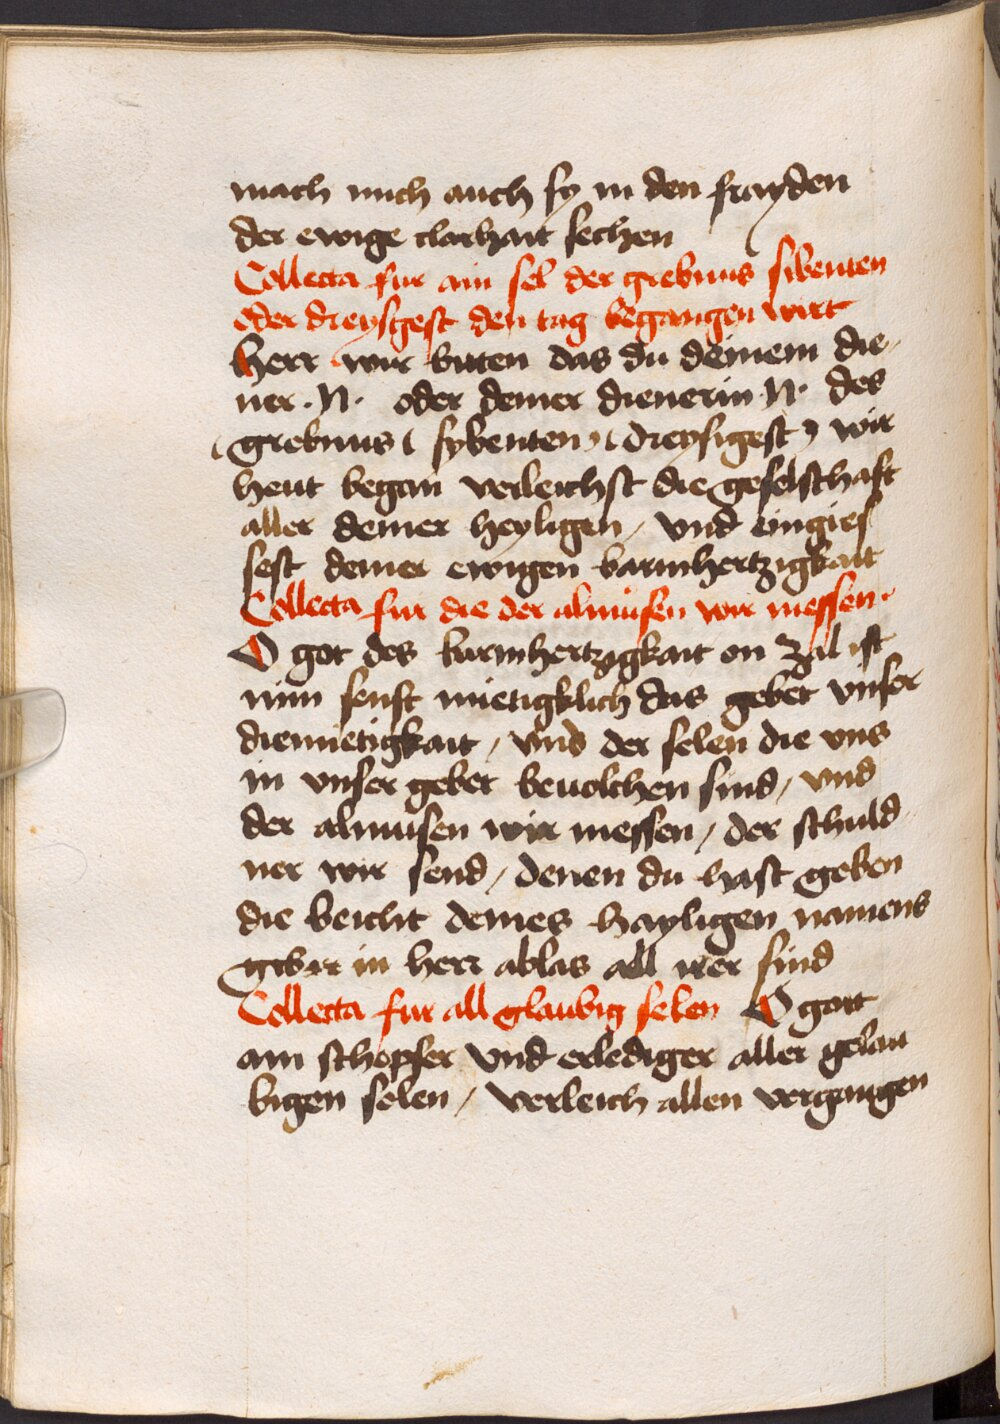 mach mich auch sy in den frayden
der ewige clarhait sechen
Collecta fur ain sel der grebnus sibenten
oder dreysgest den tag begangen wirt
Herr wir biten das du deinem die-
ner .N. oder deiner dienerin .N. des
( grebnus ( sybenten ) ( dreysigest ) wir
heut began verleichst die geselschaft
aller deiner heyligen / vnd eingies
sest deiner ewigen barmhertzigkait
Collecta fur die der almusen wir niessen.
O got des barmhertzigkait on zal ist
nim senft mietigklich das gebet vnser
diemietigkait / vnd der selen die vns
in vnser gebet beuolchen sind / vnd
der almusen wir niessen / der schuld
ner wir send / denen du hast geben
die beicht deines hayligen namens
in herr ablas all irer sind
Collecta fur all glaubig selen O gott
ain schopfer vnd erlediger aller gelau
bigen selen / verleich allen vergangen